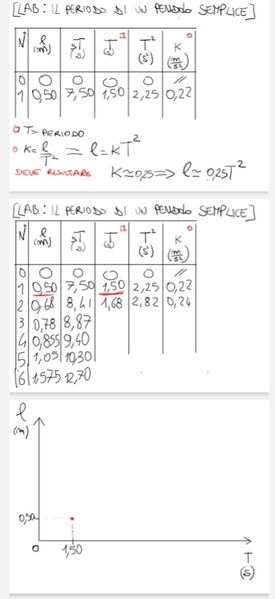 [LAB: IL PERIODO DI UN PENDOLO SEMPLICE]
N l (m) 5T (s) T (s) T² (s²) K (m/s²)
0 0 0 0 0 //
1 0,50 7,50 1,50 2,25 0,22
T= PERIODO
K= l/T² ≃ l=KT²
DEVE RISULTARE K≃0,25 => l≃0,25T²
[LAB: IL PERIODO DI UN PENDOLO SEMPLICE]
N l (m) 5T (s) T (s) T² (s²) K (m/s²)
0 0 0 0 0 //
1 0,50 7,50 1,50 2,25 0,22
2 0,68 8,41 1,68 2,82 0,24
3 0,78 8,87
4 0,855 9,40
5 1,05 10,30
6 1,575 12,70
l
(m)
0,50
0 1,50
T
(s)